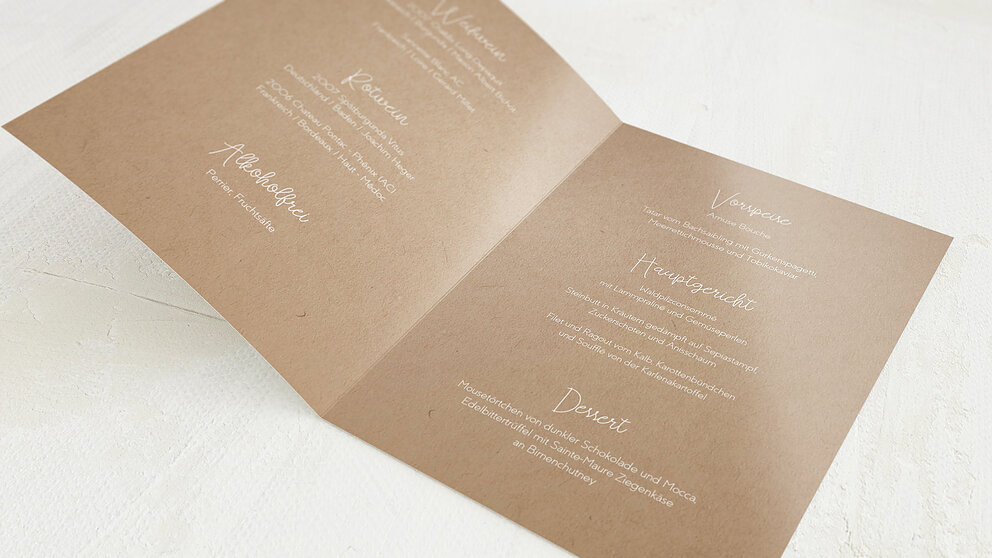 Weißwein
Frankreich / Loire / Gerard Millet
Rotwein
2007 Spätburgunda Vitus
Deutschland / Baden / Joachim Heger
2006 Chateau Pontac - Phénix (AC)
Frankreich / Bordeaux / Haut - Medoc
Alkoholfrei
Perrier, Fruchtsäfte
Vorspeise
Amuse Bouche
Tatar vom Bachsaibling mit Gurkenspagetti,
Meerrettichmousse und Tobikokaviar
Hauptgericht
Waldpilzconsomme
mit Lammpraline und Gemüseperlen
Steinbutt in Kräutern gedämpft auf Sepiastampf
Zuckerschoten und Anisschaum
Filet und Ragout vom Kalb, Karottenbündchen
und Soufflé von der Karlenakartoffel
Dessert
Mousetörtchen von dunkler Schokolade und Mocca,
Edelbittertrüffel mit Sainte-Maure Ziegenkäse
an Birnenchutney